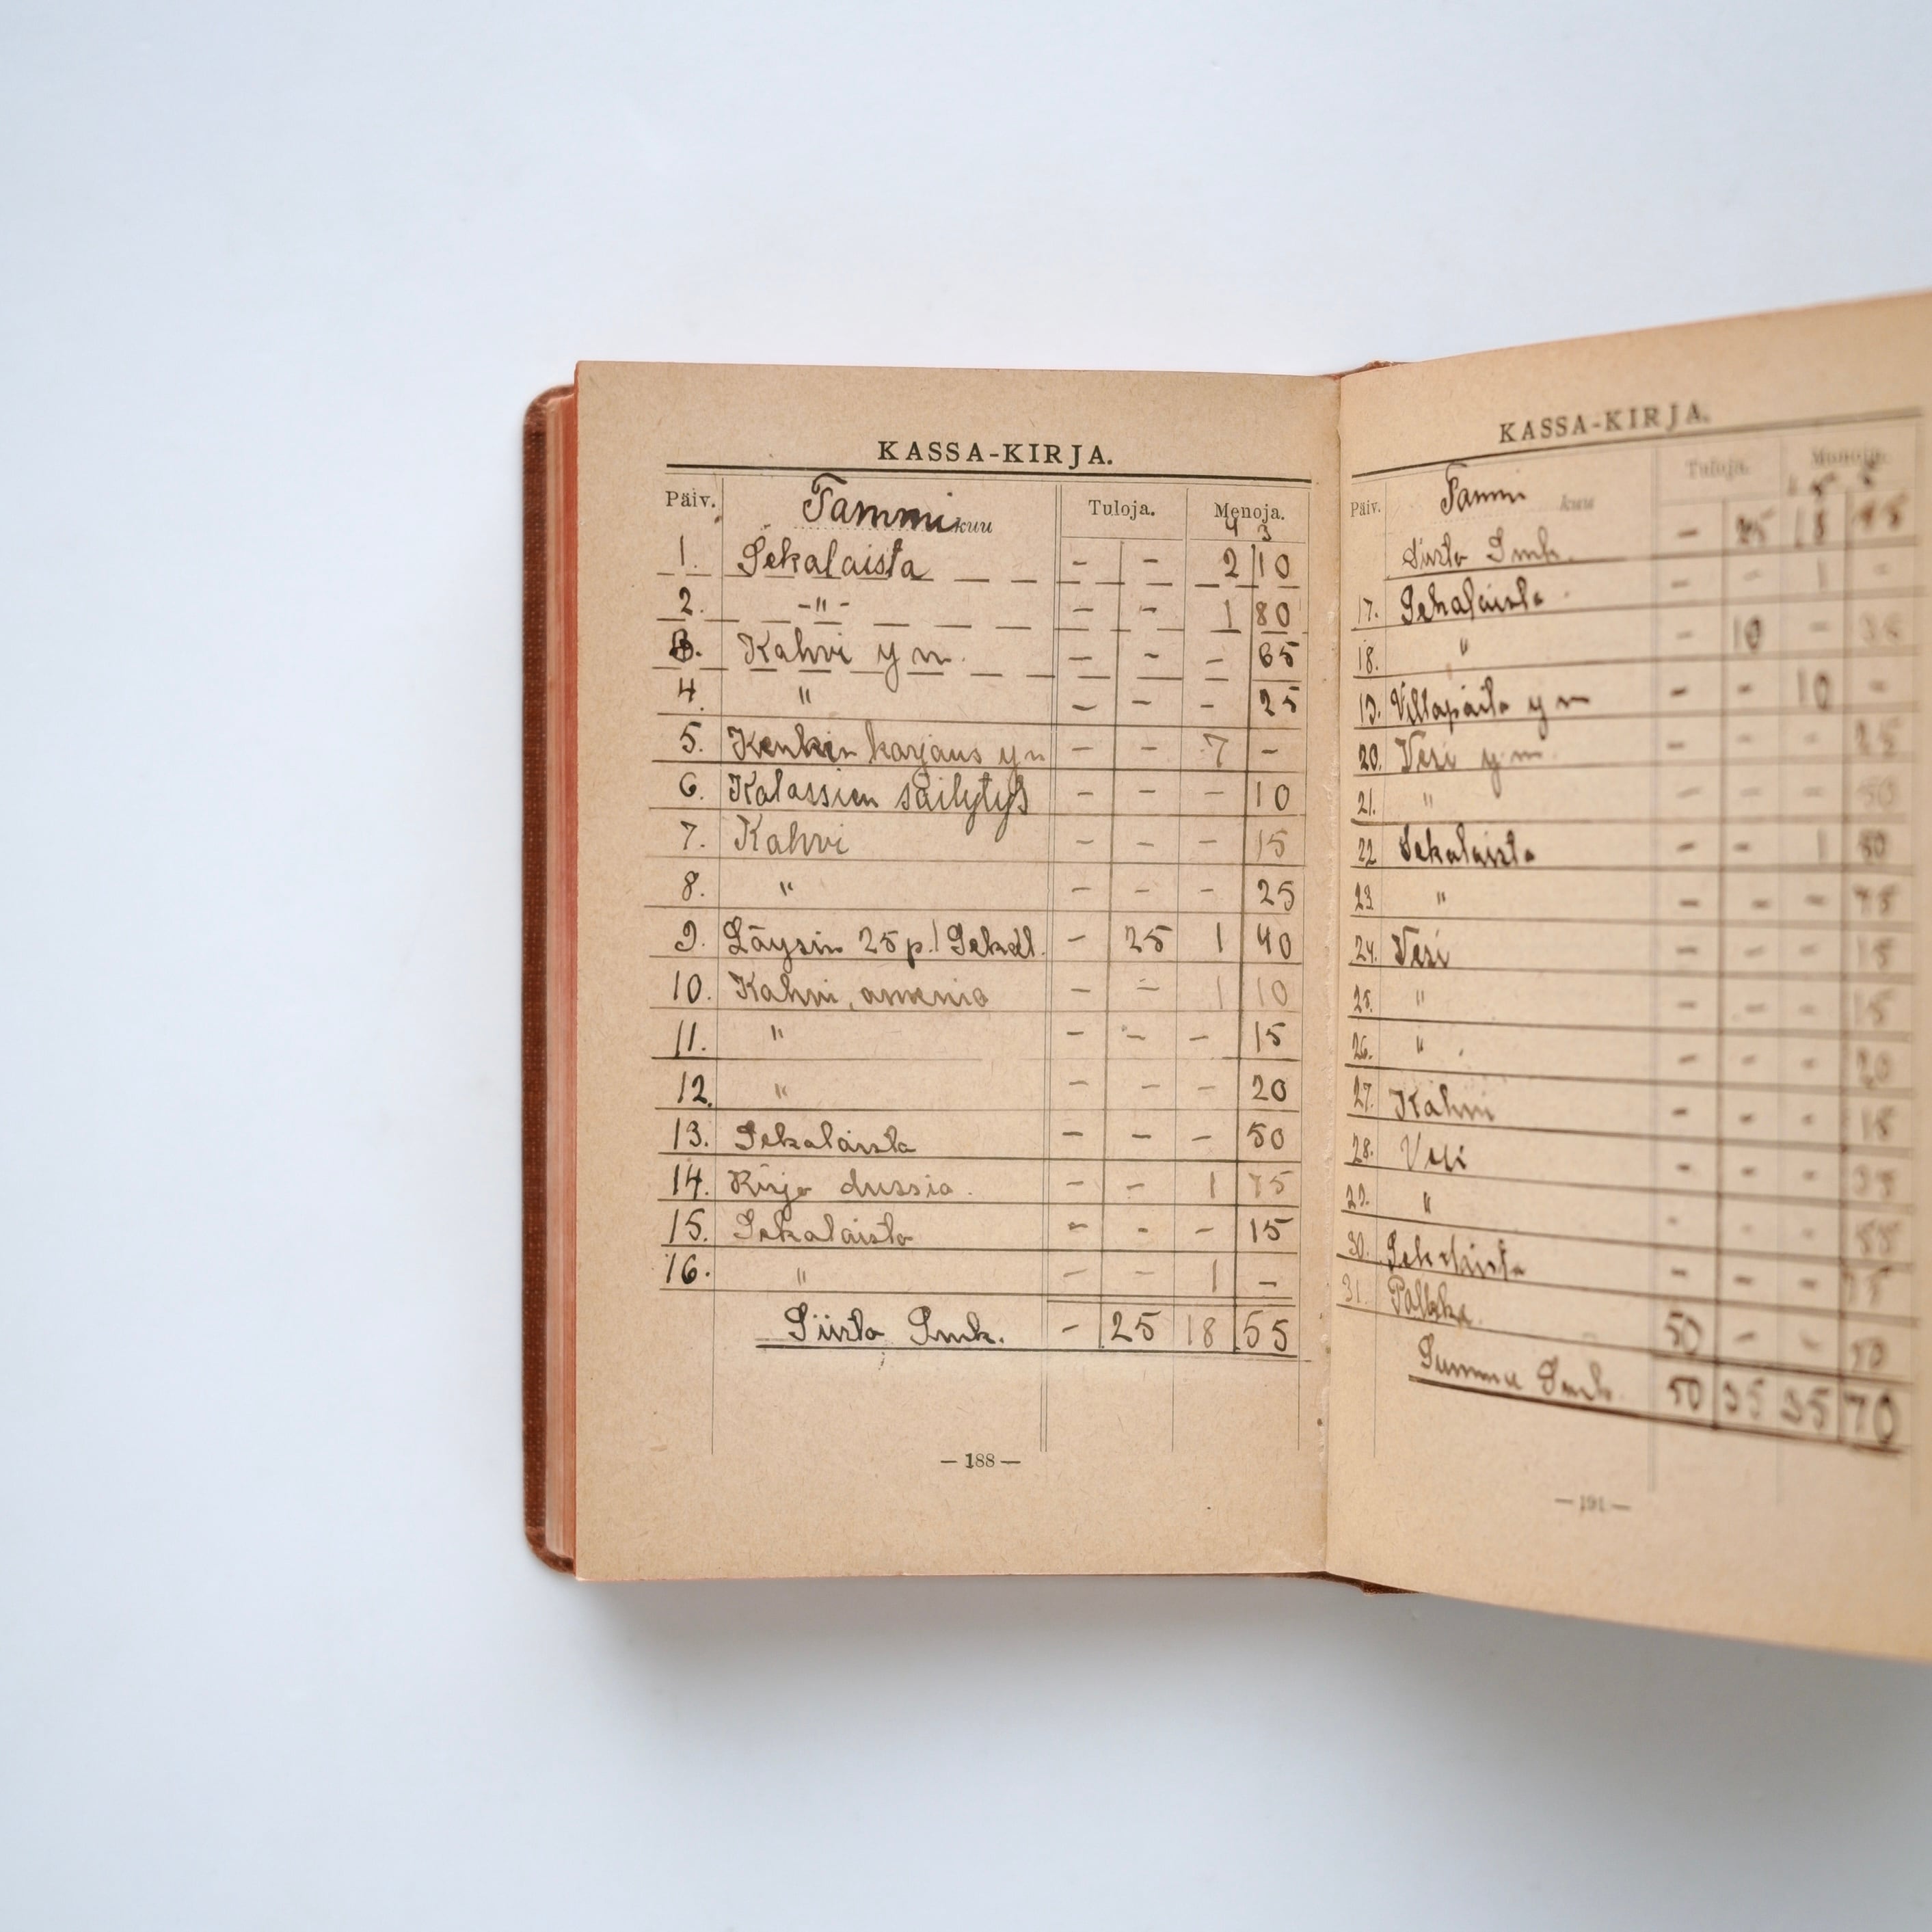 KASSA-KIRJA.
Päiv. Tammi kuu Tuloja. Menoja.
4 3
1. Sekalaista - - 2 10
2. -"- - - 1 80
3. Kahvi y m. - - - 65
4. " - - - 25
5. Kenkin karjaus y m - - 7 -
6. Kalassien säilytys - - - 10
7. Kahvi - - - 15
8. " - - - 25
9. Löysin 25 p.! Sekal. - 25 1 40
10. Kahvi, - - 1 10
11. " - - - 15
12. " - - - 20
13. Sekalaista - - - 50
14. Kirja - - 1 75
15. Sekalaista - - - 15
16. " - - 1 -
Siirto Smk. - 25 18 55
— 188 —
KASSA-KIRJA.
Päiv. Tammi kuu Tuloja. Menoja.
Siirto Smk. - 25 18
17. Sekalaista - - 1 -
18. " - 10 -
19. Villapaita y m - - 10 -
20. Vesi y m - - - 25
21. " - - - 50
22 Sekalaista - - 1
23 " - - - 75
24. Vesi - - - 15
25. " - - - 15
26. " - - - 20
27. Kahvi - - - 15
28. Vesi - - -
29. " - - -
30. Sekalaista - - -
31. Palkka 50 - -
Summa Smk. 50 35 35 70
— 191 —